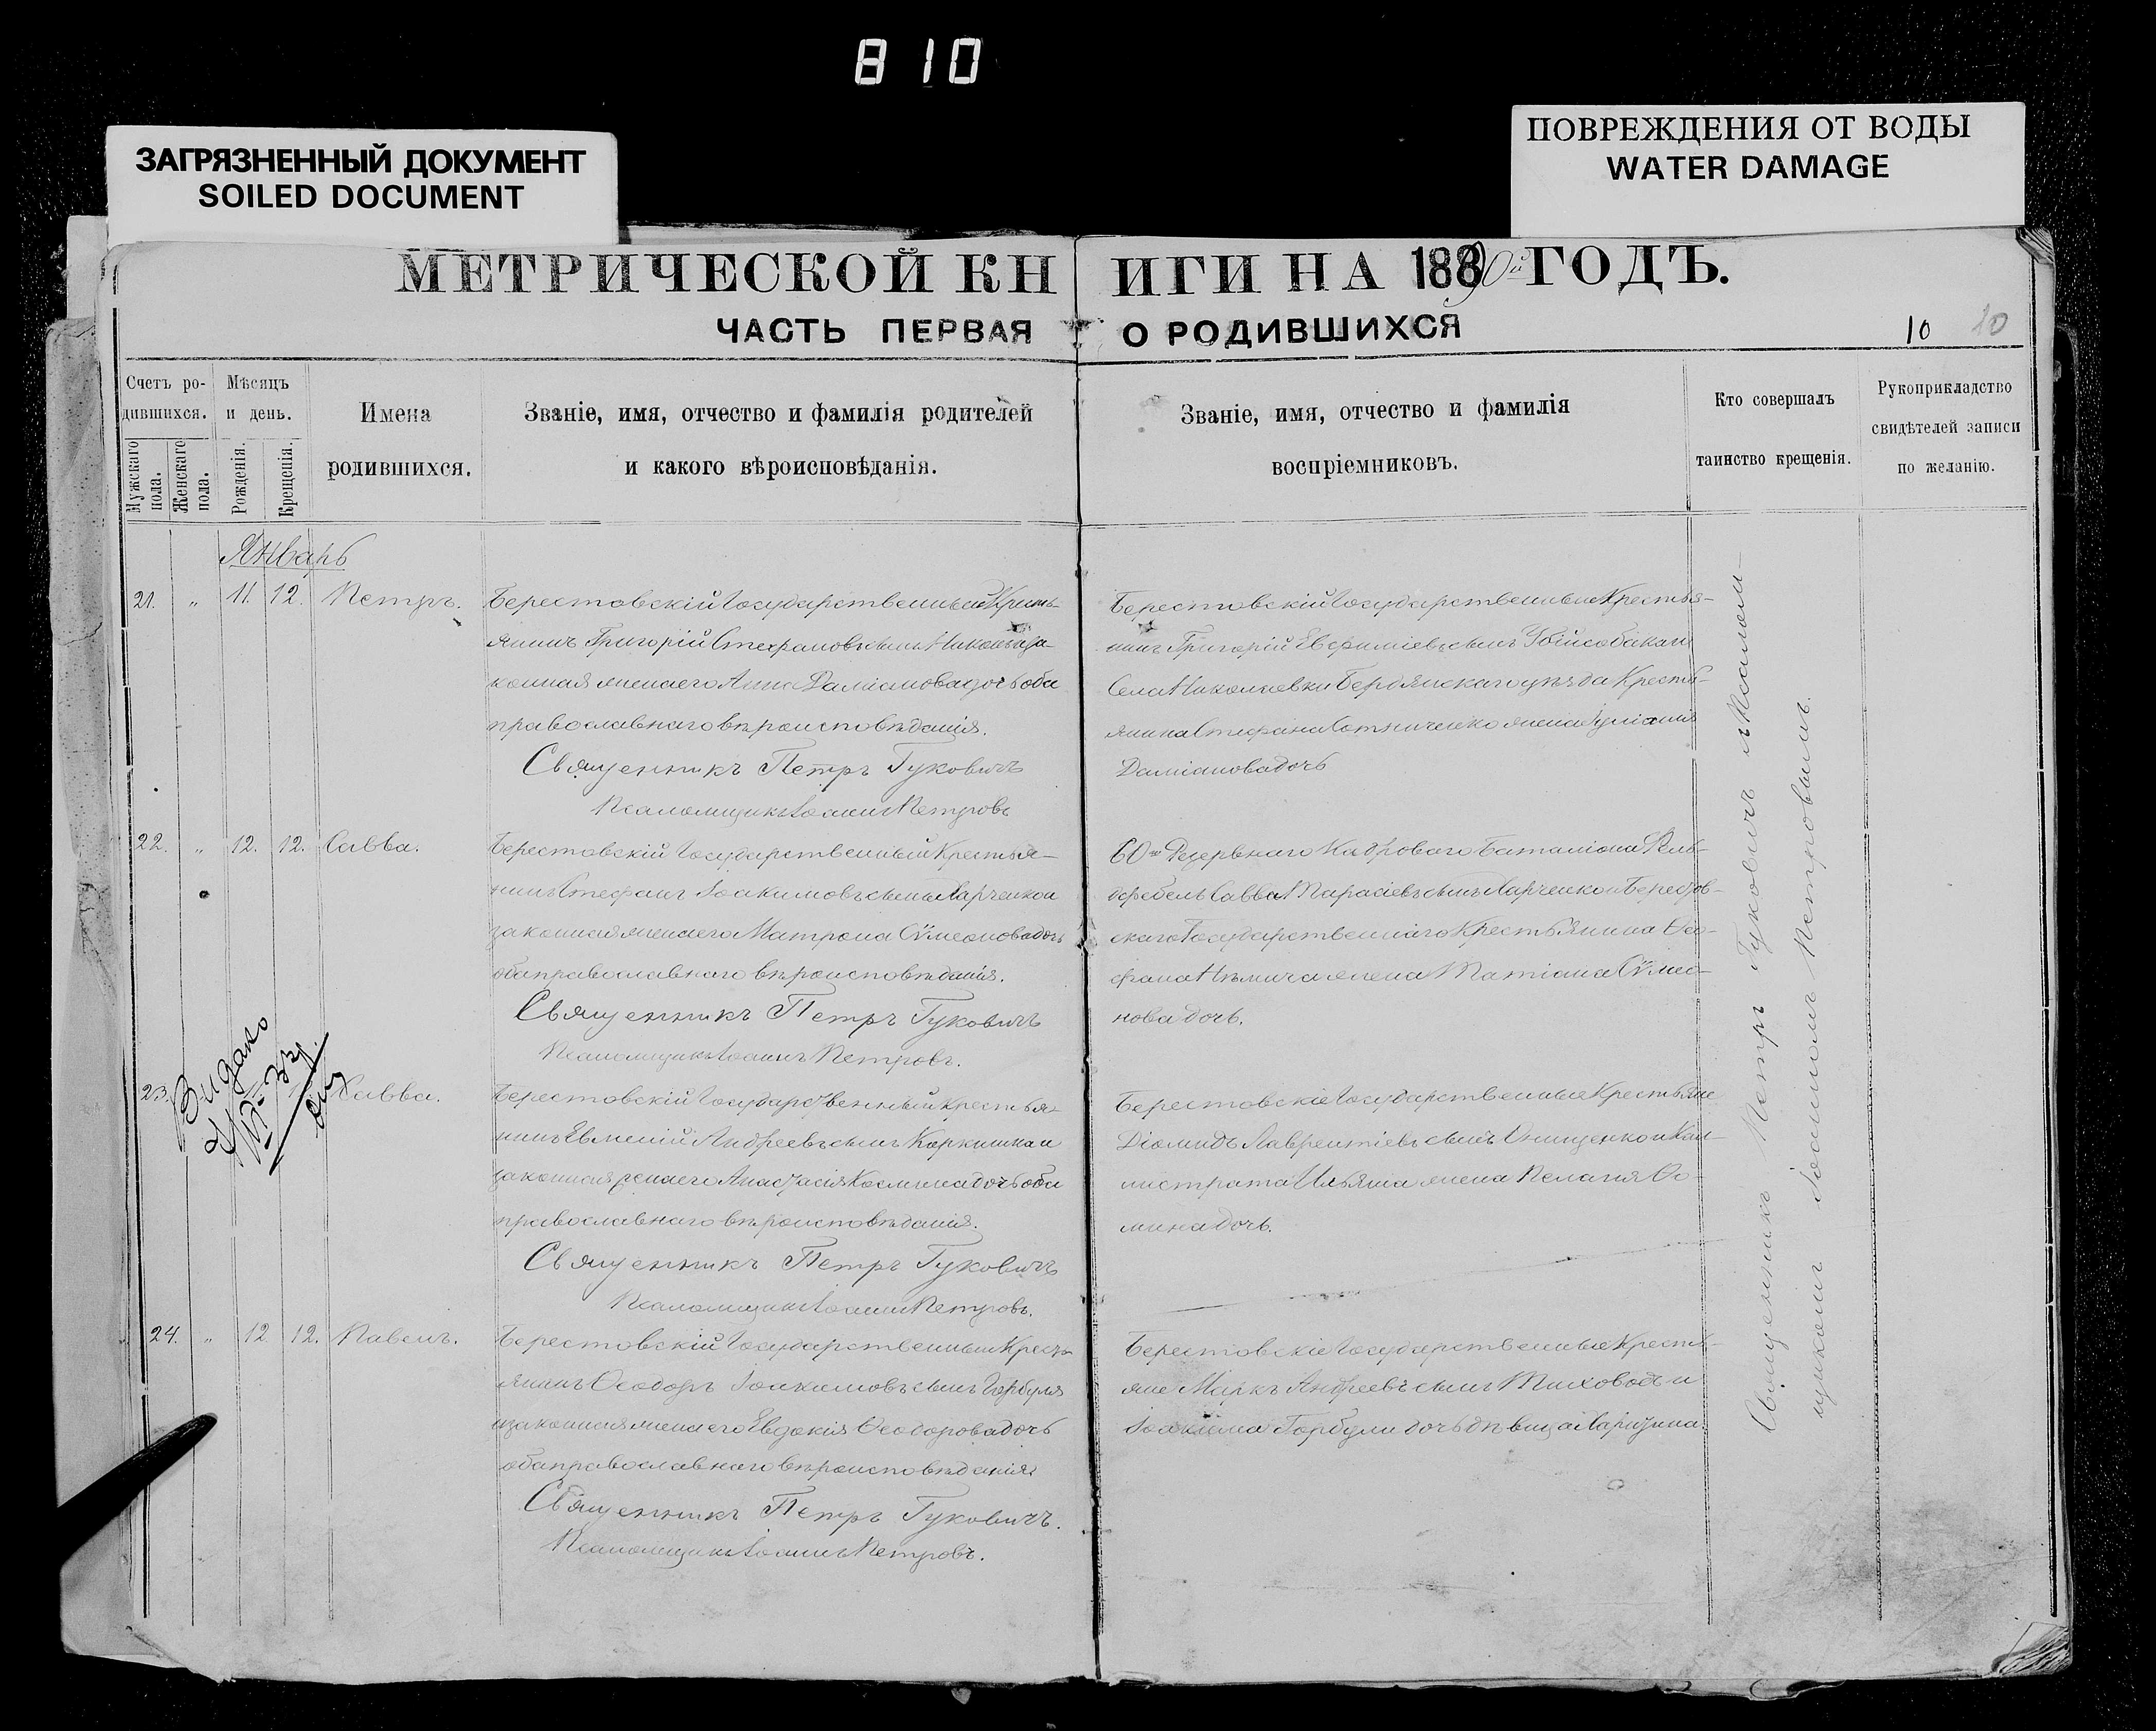 810
ЗАГРЯЗНЕННЫЙ ДОКУМЕНТ
SOILED DOCUMENT
ПОВРЕЖДЕНИЯ ОТ ВОДЫ
WATER DAMAGE
МЕТРИЧЕСКОЙ КНИГИ НА 1890й ГОДЪ.
ЧАСТЬ ПЕРВАЯ О РОДИВШИХСЯ
10 10
Счетъ ро-
дившихся.
Мужскаго пола.
Женскаго пола.
Мѣсяцъ
и день.
Рожденія.
Крещенія.
Имена
родившихся.
Званіе, имя, отчество и фамилія родителей
и какого вѣроисповѣданія.
Званіе, имя, отчество и фамилія
воспріемниковъ.
Кто совершалъ
таинство крещенія.
Рукоприкладство
свидѣтелей записи
по желанію.
Январь
21. „ 11. 12. Петръ.
Берестовскій Государственный Кресть-
янинъ Григорій Стефановъ сынъ и за-
конная жена его Анна Даміанова дочь оба
православнаго вѣроисповѣданія.
Священникъ Петръ Гуковичъ
Псаломщикъ Іоаннъ Петровъ
Берестовскій Государственный Крестья-
нинъ Григорій Евфиміевъ сынъ Убійсобака и
Села Николаевки Бердянскаго уѣзда Кресть-
янина Стефана Сотниченко жена Іуліанія
Даміанова дочь
22. „ 12. 12. Савва.
Берестовскій Государственный Крестья-
нинъ Стефанъ Іоакимовъ сынъ Харченко и
законная жена его Матрона Сѵмеонова дочь
оба православнаго вѣроисповѣданія.
Священникъ Петръ Гуковичъ
Псаломщикъ Іоаннъ Петровъ.
60го Резервнаго Кадроваго Баталіона Фельд-
фебель Савва Тарасіевъ сынъ Харченко и Берестов-
скаго Государственнаго Крестьянина Ѳео-
фана Нѣмича жена Татіана Сѵмео-
нова дочь.
23. Савва.
Видано
Берестовскій Государственный Крестья-
нинъ Евменій Андреевъ сынъ Коркишка и
законная жена его Анастасія Космина дочь оба
православнаго вѣроисповѣданія.
Священникъ Петръ Гуковичъ
Псаломщикъ Іоаннъ Петровъ.
Берестовскіе Государственные Крестьяне
Діомидъ Лаврентіевъ сынъ Онищенко и Кал-
листрата Ильяша жена Пелагія Ѳо-
мина дочь.
24. „ 12 12. Павелъ.
Берестовскій Государственный Кресть-
янинъ Ѳеодоръ Іоакимовъ сынъ Горбуля
и законная жена его Евдокія Ѳеодорова дочь
оба православнаго вѣроисповѣданія
Священникъ Петръ Гуковичъ.
Псаломщикъ Іоаннъ Петровъ.
Берестовскіе Государственные Кресть-
яне Маркъ Андреевъ сынъ Тиховодъ и
Іоакима Горбули дочь дѣвица Харитина.
Священникъ Петръ Гуковичъ съ Псалом-
щикомъ Іоанномъ Петровымъ.